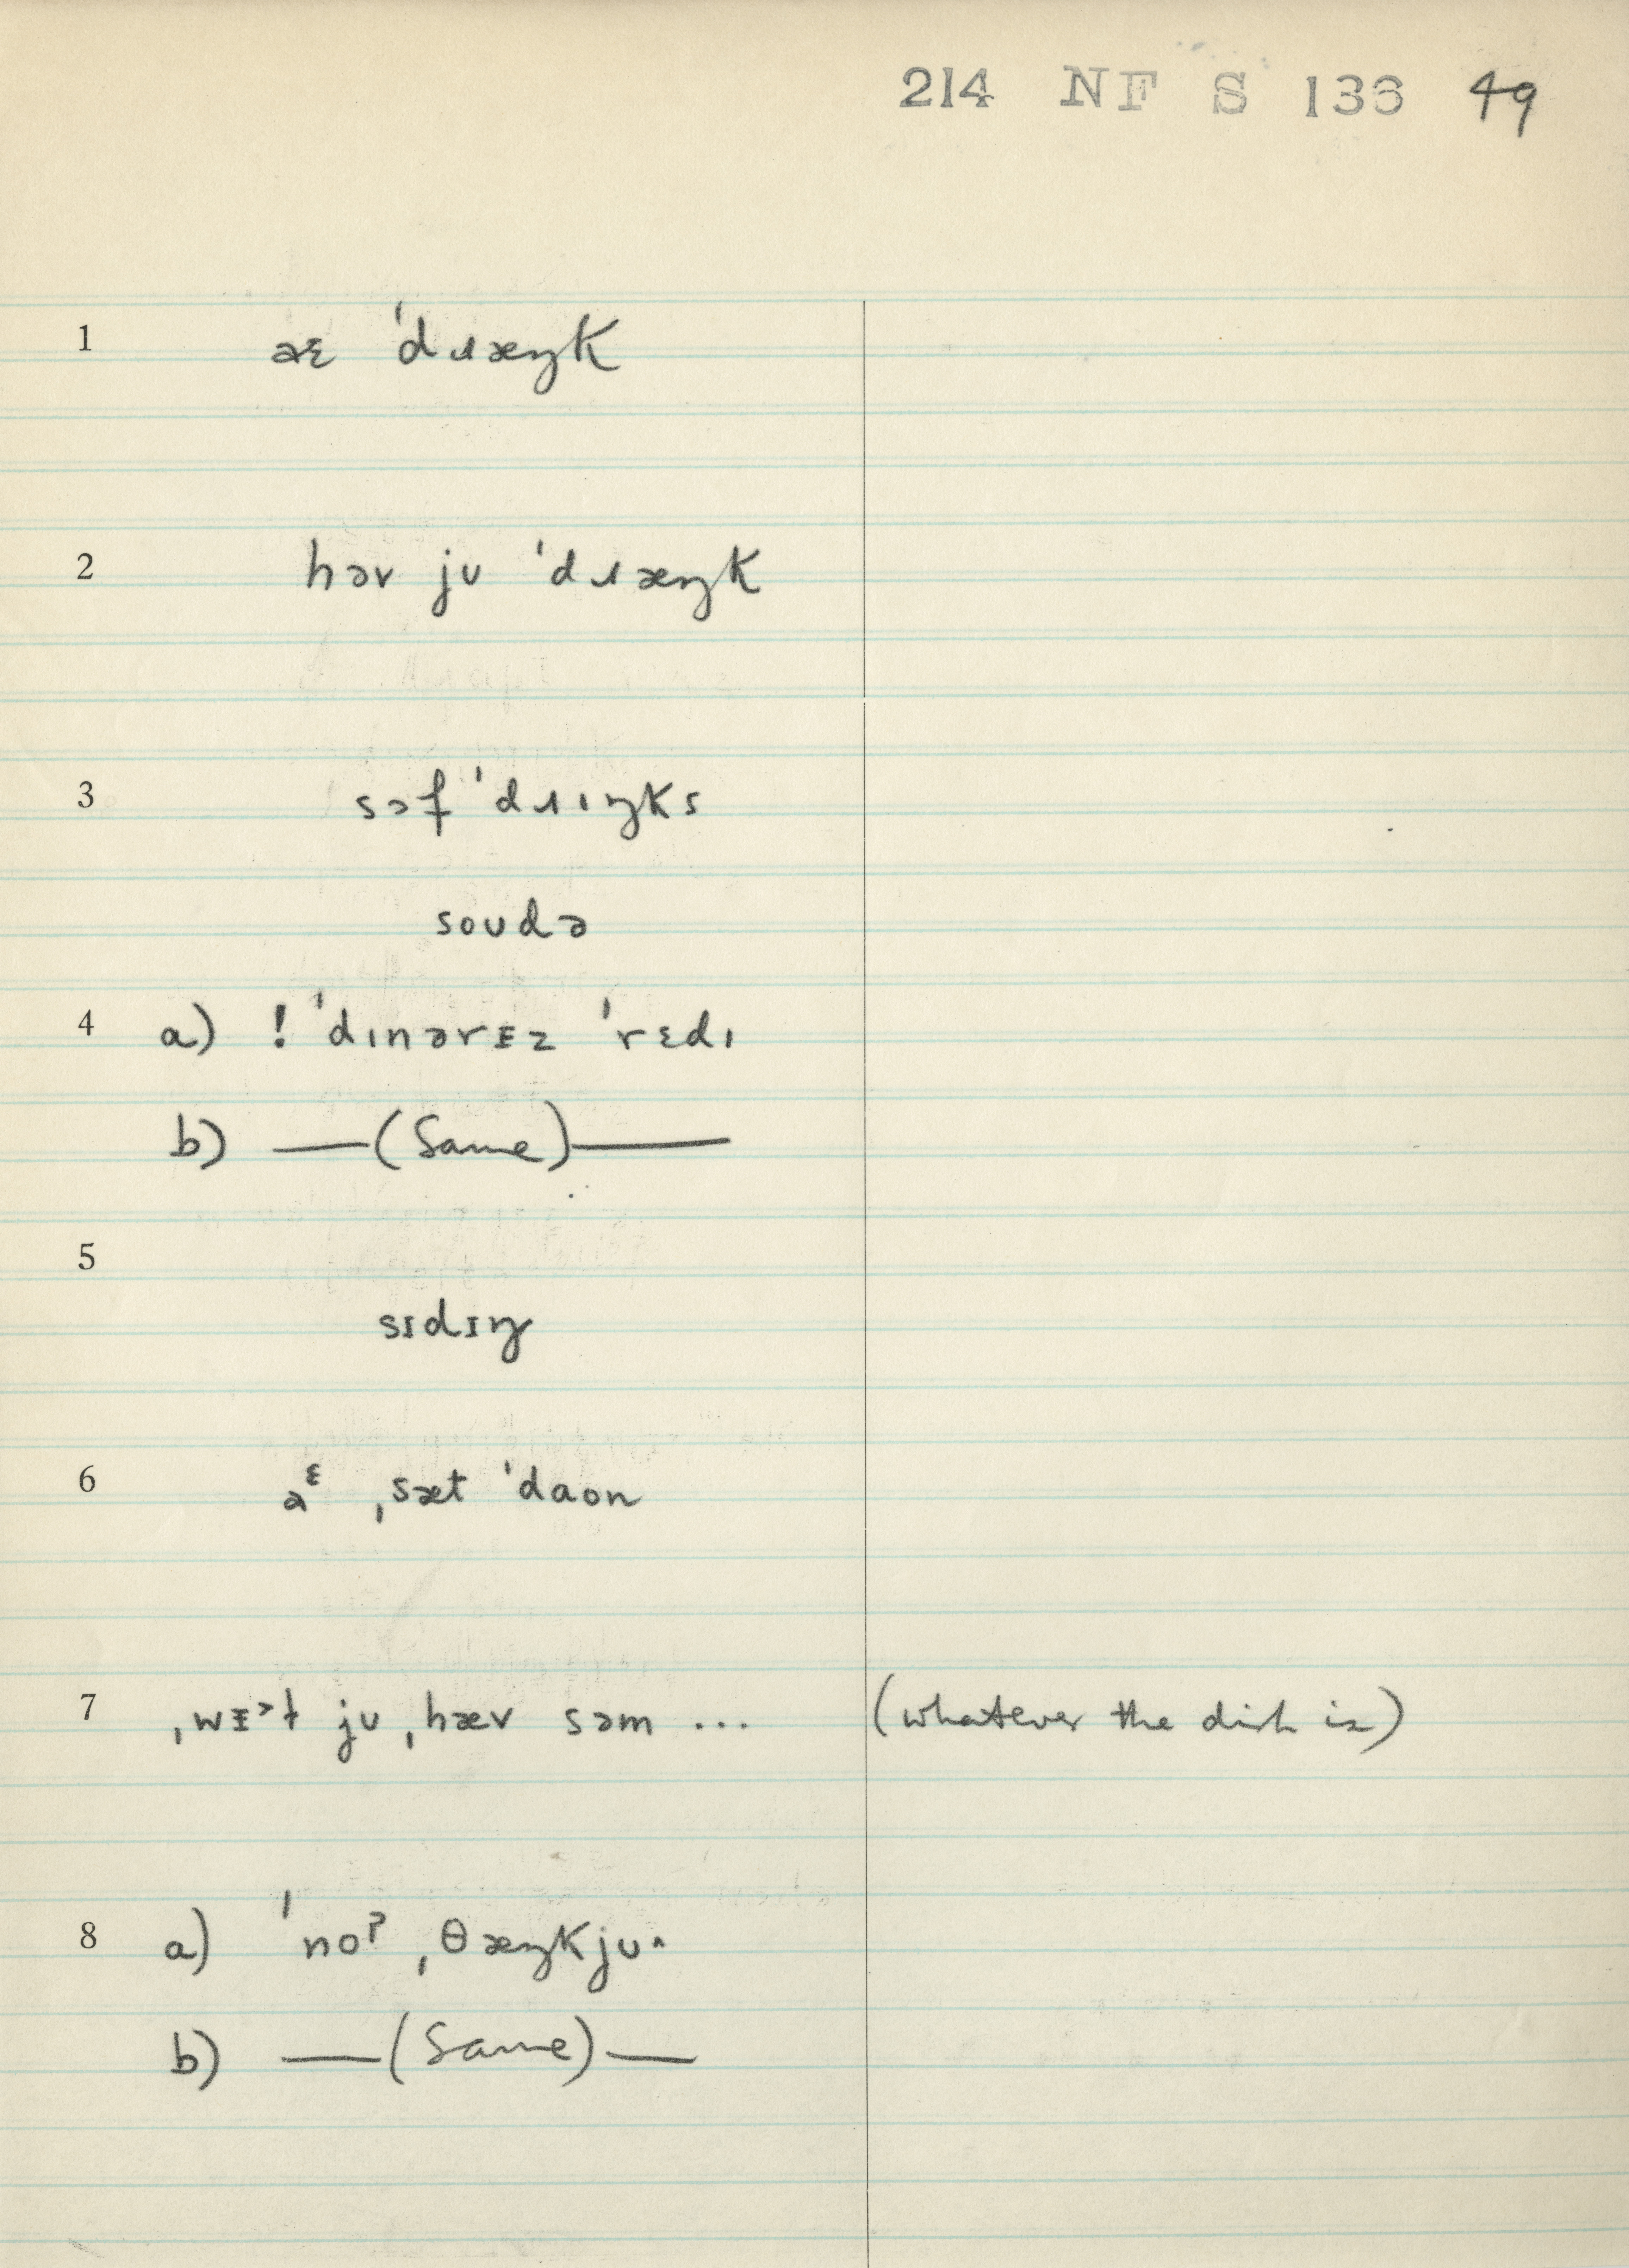 214 NF S 133 49
1 əɛ 'dɹæŋk
2 həv ju 'dɹæŋk
3 sɔf 'dɹıŋks
soudə
4 a) ! 'dınərɛz 'rɛdı
b) —(Same)—
5
sɪdɪŋ
6 aᵋ ˌsæt 'daon
7 ˌwɪᵊt ju ˌhæv səm ... (whatever the dish is)
8 a) 'noˀ ˌθæŋkju^
b) —(Same)—